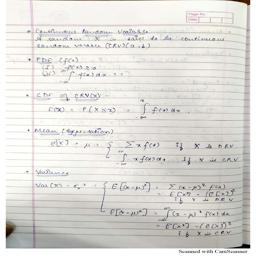 • Continuous Random Variable
A random X is said to be continuous
random variable (CRV) (a, b)
• PDF (f(x))
(i) f(x) ≥ 0
(ii) ∫ f(x) dx = 1
• CDF of CRV(X) -
F(x) = P(X ≤ x) = ∫ f(x) dx
• Mean (Expectation)
E[X] = μ = { Σ x f(x) If X is DRV
∫ x f(x) dx If X is CRV
• Variance
Var(X) = σx² = { E[(x-μ)²] = Σ (x-μ)² f(x)
= E[x²] - (E[x])²
If X is DRV
E[(x-μ)²] = ∫ (x-μ)² f(x) dx
= E[x²] - (E[x])²
If X is CRV
Scanned with CamScanner